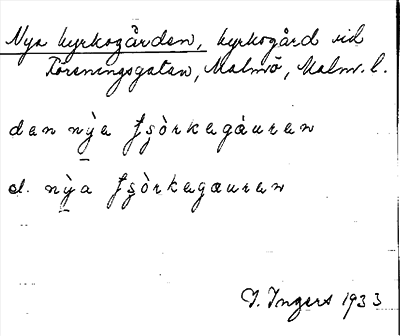 Nya kyrkogården, kyrkogård vid
Föreningsgatan, Malmö, Malm. l.
den nỳa ʃʂòrkagáuran
d. nỳa ʃʂòrkagæuran
I. Ingers 1933